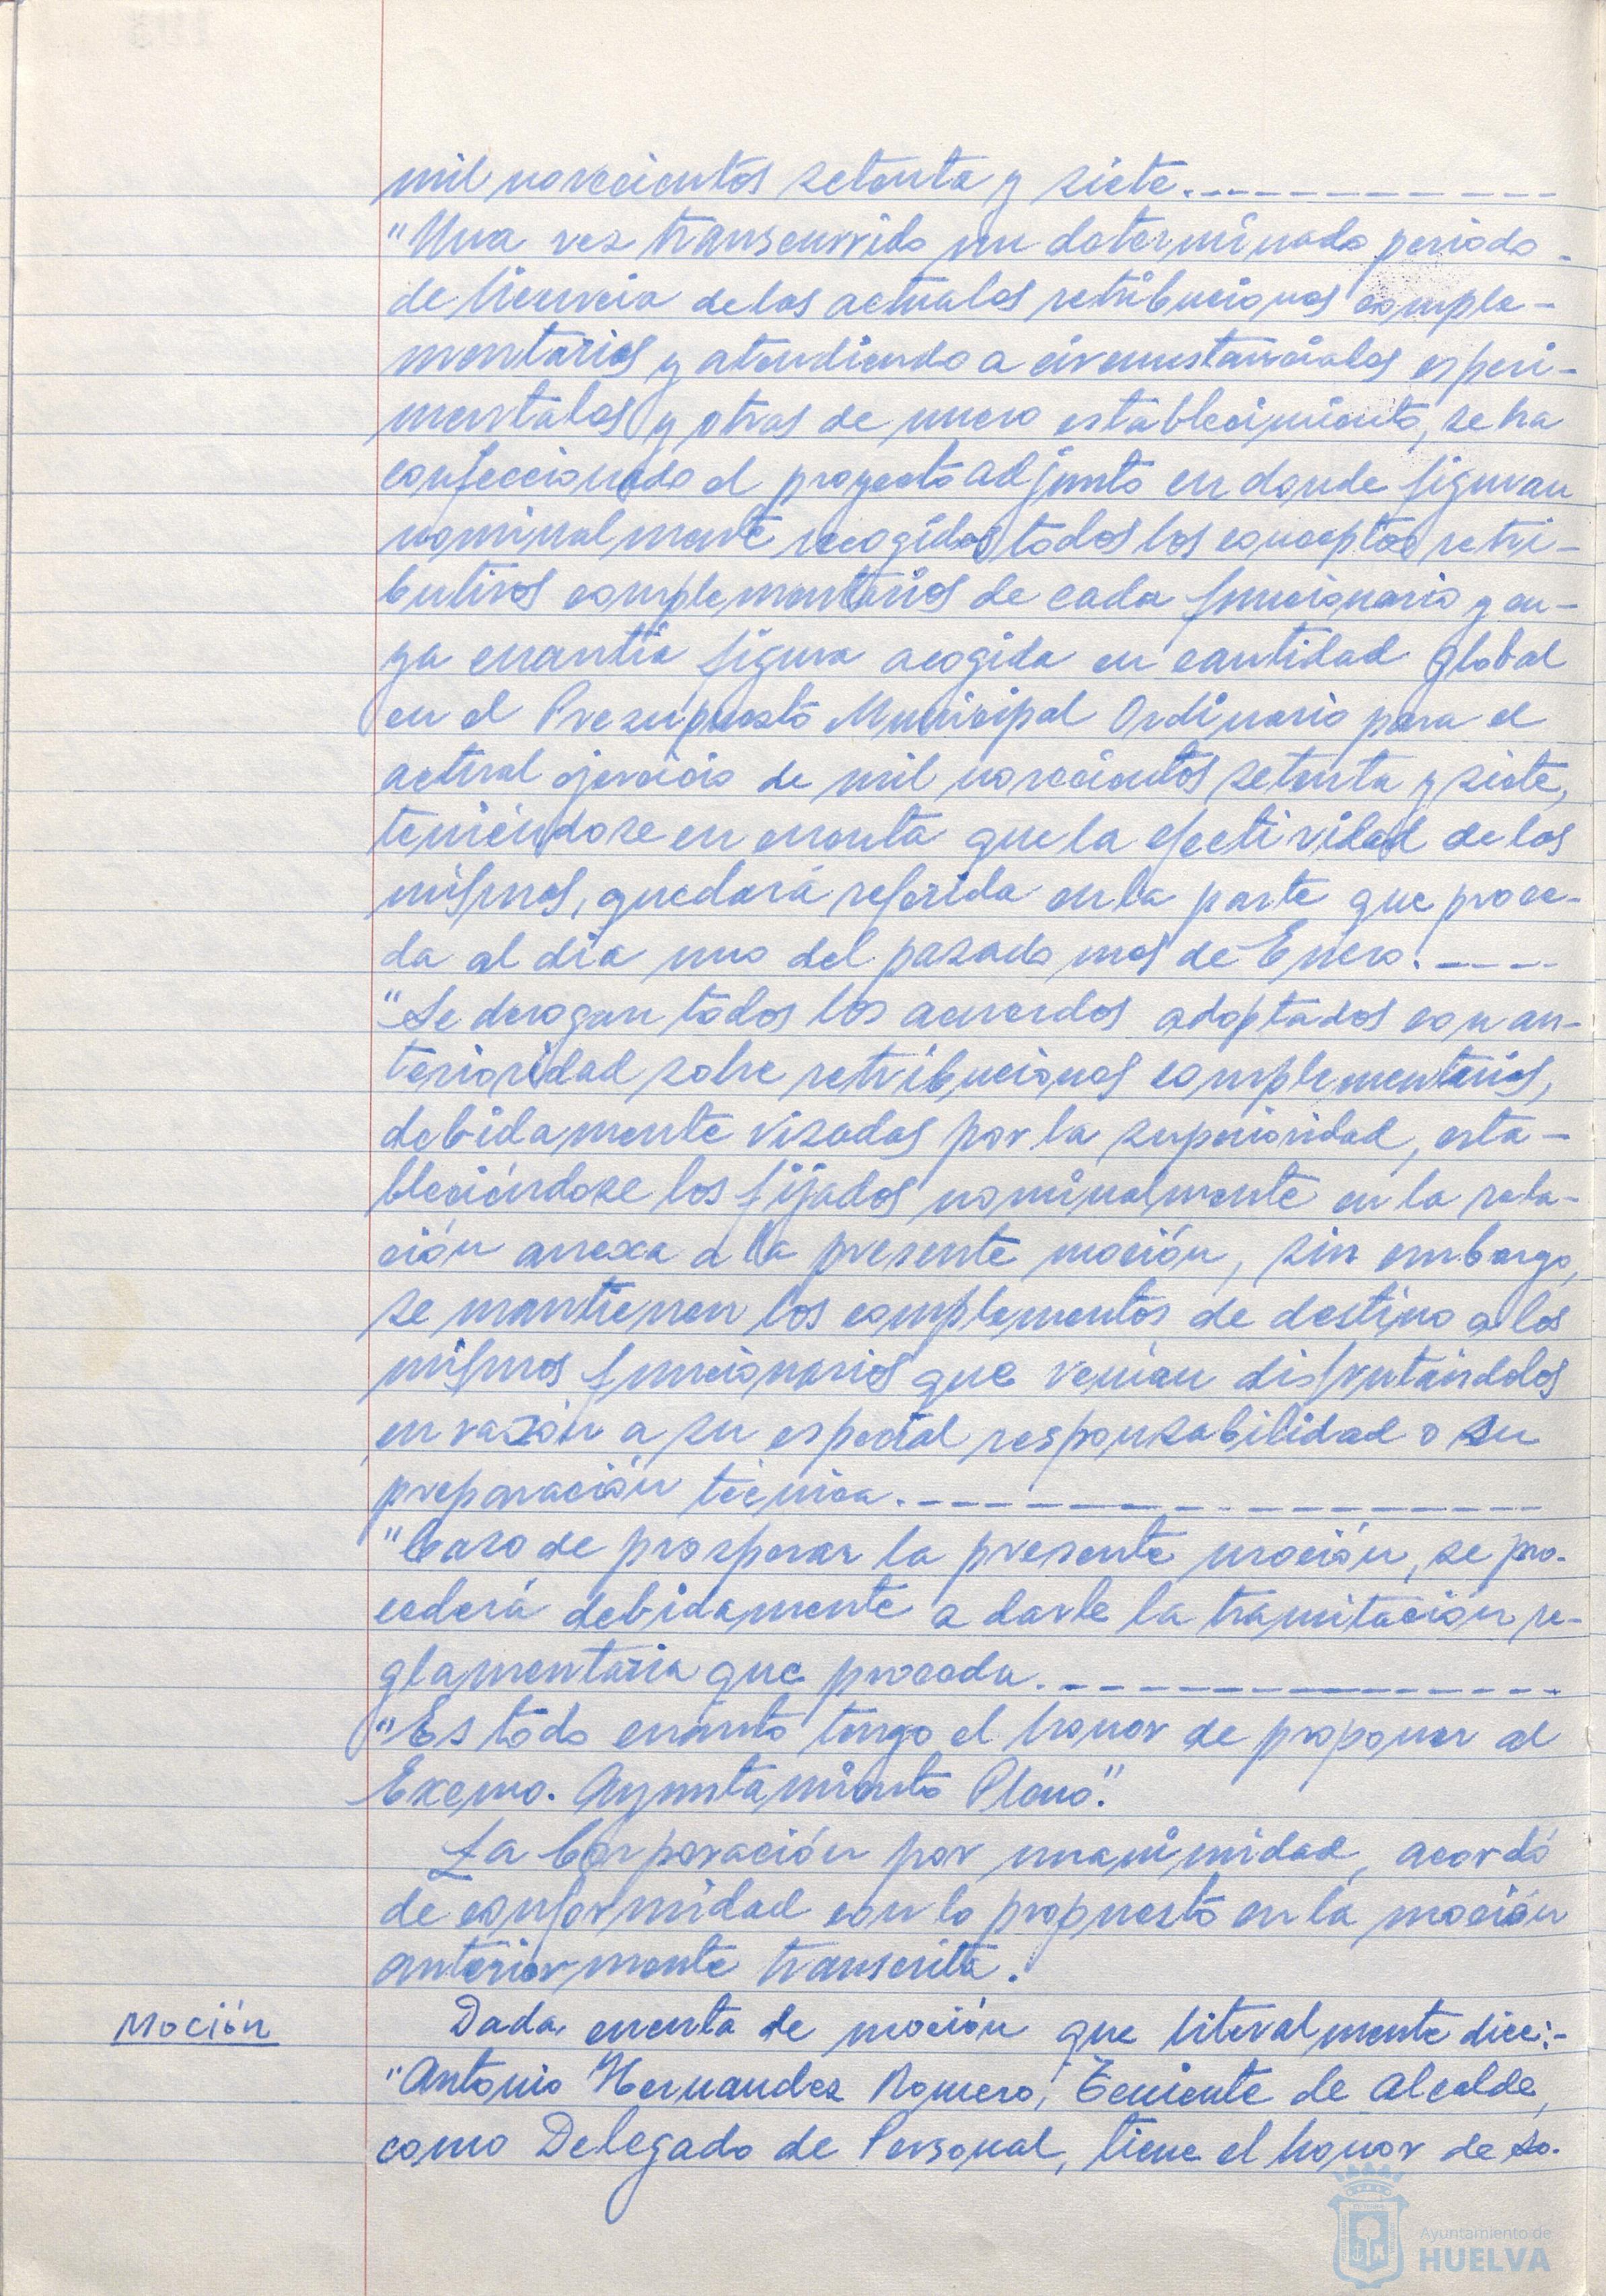 mil novecientos setenta y siete.
"Una vez transcurrido un determinado periodo
de licencia de las actuales retribuciones comple-
mentarias y atendiendo a circunstanciales experi-
mentales y otras de nuevo establecimiento, se ha
confeccionado el proyecto adjunto en donde figuran
nominalmente recogidos todos los conceptos retri-
butivos complementarios de cada funcionario y cu-
ya cuantía figura acogida en cantidad global
en el Presupuesto Municipal Ordinario para el
actual ejercicio de mil novecientos setenta y siete,
teniéndose en cuenta que la efectividad de los
mismos, quedará referida en la parte que proce-
da al día uno del pasado mes de Enero.
"Se derogan todos los acuerdos adoptados con an-
terioridad sobre retribuciones complementarias,
debidamente visados por la superioridad, esta-
bleciéndose los fijados nominalmente en la rela-
ción anexa a la presente moción, sin embargo,
se mantienen los complementos de destino a los
mismos funcionarios que venían disfrutándolos
en razón a su especial responsabilidad o su
preparación técnica.
"Caso de prosperar la presente moción, se pro-
cederá debidamente a darle la tramitación re-
glamentaria que proceda.
"Es todo cuánto tengo el honor de proponer al
Excmo. Ayuntamiento Pleno".
La Corporación por unanimidad, acordó
de conformidad con lo propuesto en la moción
anteriormente transcrita.
Moción
Dada cuenta de moción que literalmente dice:-
"Antonio Hernandez Romero, Teniente de Alcalde,
como Delegado de Personal, tiene el honor de so-
Ayuntamiento de
HUELVA